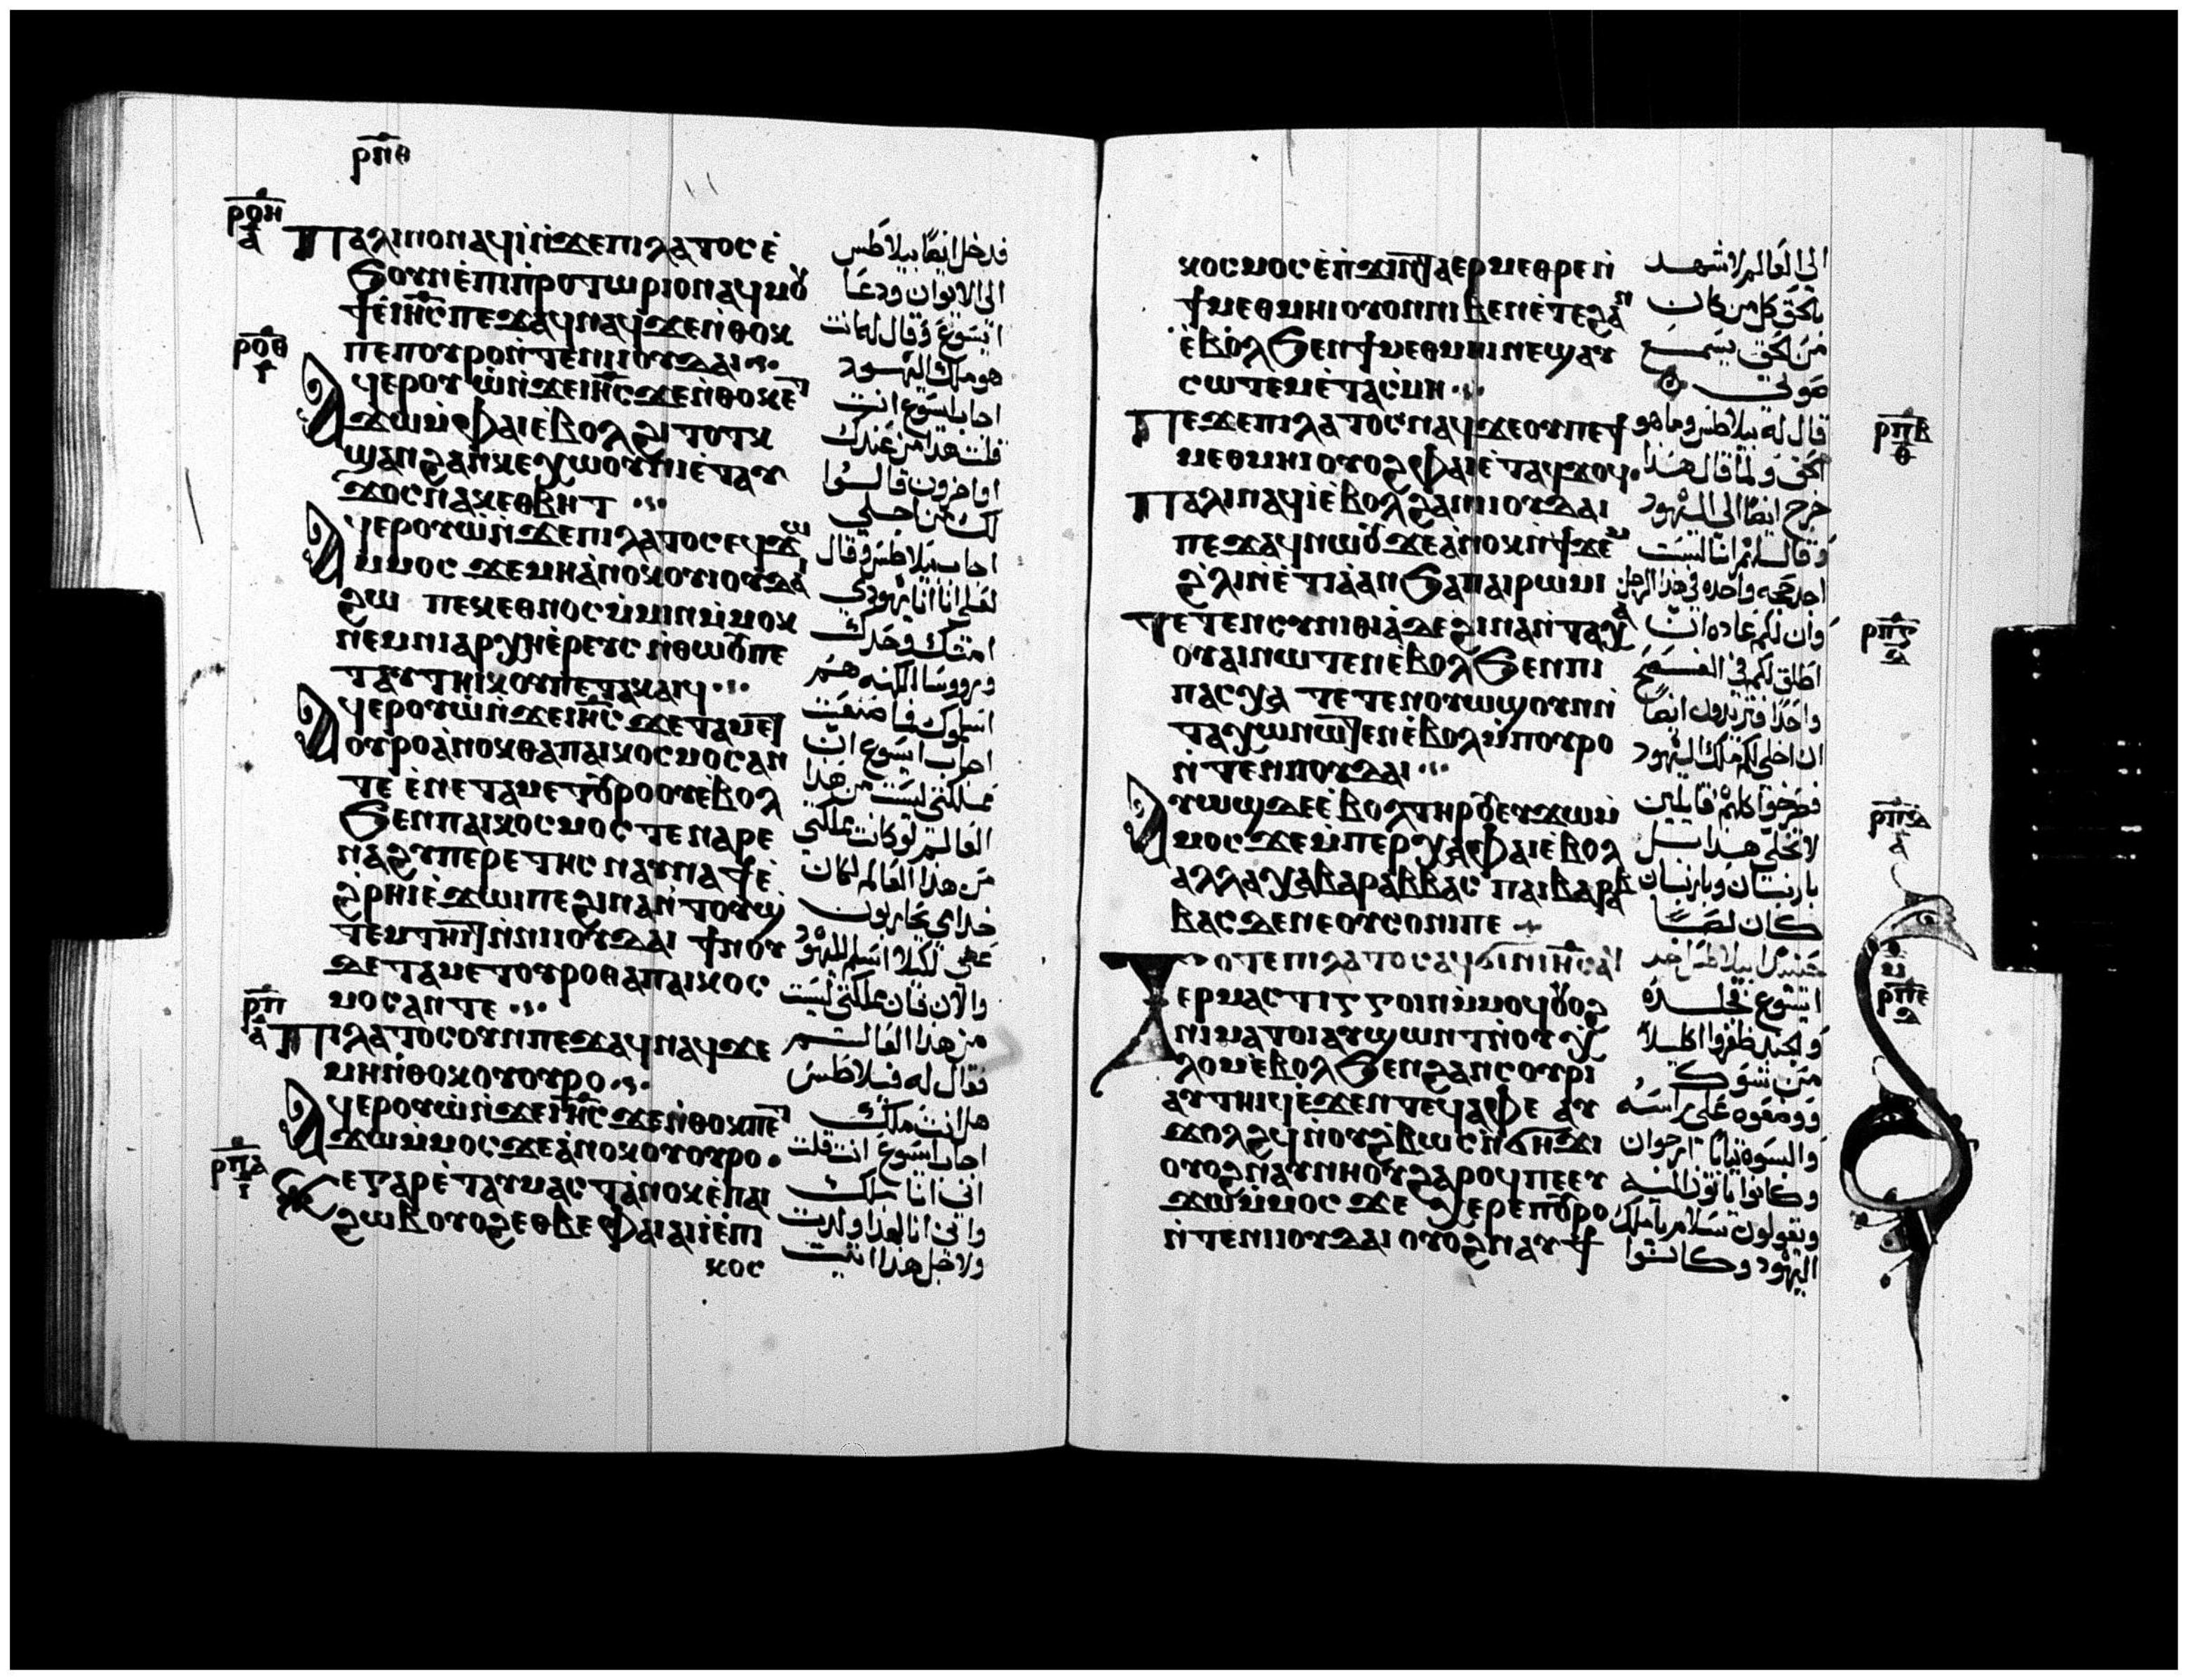 ⲣⲡⲑ
ⲣⲟⲏ
ⲁ
ⲡⲁⲗⲓⲛⲟⲛⲁϥⲓ̀ⲛ̀ϫⲉⲡⲓⲗⲁⲧⲟⲥⲉ̀
ϧⲟⲩⲛⲉ̀ⲡⲓⲡⲣⲟⲧⲱⲣⲓⲟⲛⲁϥⲙⲟⲩ
ϯⲉ̀ⲓⲏⲥⲡⲉϫⲁϥⲛⲁϥϫⲉⲛ̀ⲑⲟⲕ
ⲣⲟⲑ
ⲅ
ⲡⲉⲡⲟⲩⲣⲟⲛ̀ⲧⲉⲛⲓⲓⲟⲩⲇⲁⲓ
ⲁϥⲉⲣⲟⲩⲱ̀ⲛ̀ϫⲉⲓⲏⲥϫⲉⲛ̀ⲑⲟⲕⲉⲧ
ϫⲱⲙ̀ⲫⲁⲓⲉ̀ⲃⲟⲗϩⲓⲧⲟⲧⲕ
ϣⲁⲛϩⲁⲛⲕⲉⲭⲱⲟⲩⲛⲓⲉ̀ⲧⲁⲩ
ϫⲟⲥⲛⲁⲕⲉⲑⲃⲏⲧ
ⲁϥⲉⲣⲟⲩⲱ̀ⲛ̀ϫⲉⲡⲓⲗⲁⲧⲟⲥⲉϥϫⲱ
ⲙ̀ⲙⲟⲥ ϫⲉⲙⲏⲁ̀ⲛⲟⲕⲟⲩⲓⲟⲩⲇⲁⲓ
ϩⲱ ⲡⲉⲕⲉⲑⲛⲟⲥⲙ̀ⲙⲓⲛⲙ̀ⲙⲟⲕ
ⲛⲉⲙⲛⲓⲁⲣⲭⲏⲉ̀ⲣⲉⲩⲥ ⲛ̀ⲑⲱⲟⲩⲡⲉ
ⲧⲁⲩⲧⲏⲓⲕⲟⲩⲡⲉⲧⲁⲕⲁⲓϥ
ⲁϥⲉⲣⲟⲩⲱ̀ⲛ̀ϫⲉⲓⲏⲥ ϫⲉⲧⲁⲙⲉⲧ
ⲟⲩⲣⲟⲁ̀ⲛⲟⲕⲑⲁⲡⲁⲓⲕⲟⲥⲙⲟⲥⲁⲛ
ⲧⲉ ⲉ̀ⲛⲉⲧⲁⲙⲉⲧⲟⲩⲣⲟⲟⲩⲉ̀ⲃⲟⲗ
ϧⲉⲛⲡⲁⲓⲕⲟⲥⲙⲟⲥ ⲧⲉ ⲛⲁⲣⲉ
ⲛⲁϩⲩⲡⲉⲣⲉⲧⲏⲥ ⲛⲁⲩⲛⲁϯⲉ̀
ϩ̀ⲣⲏⲓⲉ̀ϫⲱⲓⲡⲉϩⲓⲛⲁⲛ̀ⲧⲟⲩϣ
ⲧⲉⲙⲧⲏⲓⲧ ⲛ̀ⲛⲓⲓⲟⲩⲇⲁⲓ ϯⲛⲟⲩ
ⲇⲉⲧⲁⲙⲉⲧⲟⲩⲣⲟⲑⲁⲡⲁⲓⲕⲟⲥ
ⲙⲟⲥⲁⲛⲧⲉ
ⲣⲡ
ⲁ
ⲡⲓⲗⲁⲧⲟⲥⲟⲩⲛⲡⲉϫⲁϥⲛⲁϥϫⲉ
ⲙⲏⲛ̀ⲑⲟⲕⲟⲩⲟⲩⲣⲟ
ⲁϥⲉⲣⲟⲩⲱ̀ⲛ̀ϫⲉⲓⲏⲥ ϫⲉⲛ̀ⲑⲟⲕⲡⲉⲧ
ϫⲱⲙ̀ⲙⲟⲥϫⲉⲁ̀ⲛⲟⲕⲟⲩⲟⲩⲣⲟ
ⲣⲡⲁ
ⲅ
ϫⲉⲅⲁⲣⲉ̀ⲧⲁⲩⲙⲁⲥⲧⲁ̀ⲛⲟⲕⲉ̀ⲡⲁⲓ
ϩⲱⲃⲟⲩⲟϩⲉⲑⲃⲉⲫⲁⲓⲁⲓⲓ̀ⲉ̀ⲡⲓ
ⲕⲟⲥ
فدخل ايضا بيلاطس
الى الايوان ودعا
ايسوع وقال له انت
هو ملك اليهود
اجاب ايسوع انت
قلت هذا من عندك
ام اخرون قالوا
لك من اجلي
اجاب بيلاطس وقال
لعلي انا انا يهودي
امتك وحدك
وروسا الكهنه هم
اسلموك فما صنعت
اجاب ايسوع ان
مملكتي ليست من هذا
العالم لو كانت مملكتي
من هذا العالم لكان
خدامي يحاربون
عني لكيلا اسلم لليهود
والان فان مملكتي ليست
من هذا العالم
فقال له فيلاطس
هل انت ملك
اجاب ايسوع انت قلت
اني انا ملك
واني انا لهذا ولدت
ولاجل هذا اتيت
ⲕⲟⲥⲙⲟⲥ ⲉ̀ⲛ̀ϫⲓⲛⲧⲁⲉⲣⲙⲉⲑⲣⲉⲛ̀
ϯⲙⲉⲑⲙⲏⲓⲟⲩⲟⲛⲛⲓⲃⲉⲛⲉ̀ⲧⲉϩⲁⲛ
ⲉ̀ⲃⲟⲗϧⲉⲛϯⲙⲉⲑⲙⲏⲓⲛⲉϣⲁⲩ
ⲥⲱⲧⲉⲙⲉ̀ⲧⲁⲥⲙⲏ
ⲡⲉϫⲉⲡⲓⲗⲁⲧⲟⲥⲛⲁϥϫⲉⲟⲩⲡⲉϯ
ⲙⲉⲑⲙⲏⲓⲟⲩⲟϩⲫⲁⲓⲉ̀ⲧⲁϥϫⲟϥ
ⲡⲁⲗⲓⲛⲁϥⲓ̀ⲉ̀ⲃⲟⲗϩⲁⲛⲓⲓⲟⲩⲇⲁⲓ
ⲡⲉϫⲁϥⲛⲱⲟⲩϫⲉⲁ̀ⲛⲟⲕⲛ̀ϯϫⲉⲙ
ϩ̀ⲗⲓⲛ̀ⲉ̀ⲧⲓⲁ̀ⲁⲛϧⲁⲡⲁⲓⲣⲱⲙⲓ
ⲧⲉⲧⲉⲛⲥⲩⲛⲓⲑⲓⲁ̀ⲇⲉϩⲓⲛⲁⲛ̀ⲧⲁⲭⲁ
ⲟⲩⲁⲓⲛⲱⲧⲉⲛⲉ̀ⲃⲟⲗϧⲉⲛⲡⲓ
ⲡⲁⲥⲭⲁ ⲧⲉⲧⲉⲛⲟⲩⲱϣⲟⲩⲛⲛ̀
ⲧⲁⲭⲱⲛⲱⲧⲉⲛⲉ̀ⲃⲟⲗⲙ̀ⲡⲟⲩⲣⲟ
ⲛ̀ⲧⲉⲛⲓⲓⲟⲩⲇⲁⲓ
ⲁⲩⲱϣⲇⲉⲉ̀ⲃⲟⲗⲧⲏⲣⲟⲩⲉⲩϫⲱⲙ̀
ⲙⲟⲥ ϫⲉⲙ̀ⲡⲉⲣⲭⲁⲫⲁⲓⲉ̀ⲃⲟⲗ
ⲁⲗⲗⲁⲭⲁⲃⲁⲣⲁⲃⲃⲁⲥ ⲡⲁⲓⲃⲁⲣⲁⲃ
ⲃⲁⲥ ⲇⲉⲛⲉⲟⲩⲥⲟⲛⲓⲡⲉ
ⲧⲟⲧⲉⲡⲓⲗⲁⲧⲟⲥⲁϥϭⲓⲛ̀ⲓⲏⲥⲁϥ
ⲉⲣⲙⲁⲥⲧⲓⲅⲅⲟⲓⲛⲙ̀ⲙⲟϥⲟⲩⲟϩ
ⲛⲓⲙⲁⲧⲟⲓⲁⲩϣⲱⲛⲧⲛ̀ⲟⲩⲭ
ⲗⲟⲙⲉ̀ⲃⲟⲗϧⲉⲛϩⲁⲛⲥⲟⲩⲣⲓ
ⲁⲩⲧⲏⲓϥⲉ̀ϫⲉⲛⲧⲉϥⲁⲫⲉ ⲁⲩ
ϫⲟⲗϩϥⲛ̀ⲟⲩϩ̀ⲃⲱⲥⲛ̀ϭⲏϫⲓ
ⲟⲩⲟϩⲛⲁⲩⲛⲏⲟⲩϩⲁⲣⲟϥⲡⲉⲉⲩ
ϫⲱⲙ̀ⲙⲟⲥ ϫⲉ ⲭⲉⲣⲉⲡⲟⲩⲣⲟ
ⲛ̀ⲧⲉⲛⲓⲓⲟⲩⲇⲁⲓ ⲟⲩⲟϩⲛⲁⲩϯ
الى العالم لاشهد
بالحق كل من كان
من الحق يسمع
صوتي
قال له بيلاطس وما هو
الحق ولما قال هذا
خرج ايضا الى اليهود
وقال لهم انا لست
اجد عله واحده في هذا الرجل
وان لكم عاده ان
اطلق لكم في الفسح
واحدا فتريدون ايضا
ان اخلي لكم ملك اليهود
فصرخوا كلهم قايلين
لا تخلي هذا بل
بارنبان وبارنبان
كان لصا
حينيذ بيلاطس اخذ
ايسوع فجلده
والجند ظفروا اكليلا
من شوك
ووضعوه على راسه
والبسوه ثياب ارجوان
وكانوا ياتون اليه
ويقولون سلام يا ملك
اليهود وكانوا
ⲣⲡⲃ
ⲑ
ⲣⲡⲅ
ⲇ
ⲣⲡⲇ
ⲁ
ⲙ
ⲣⲡⲉ
ⲇ